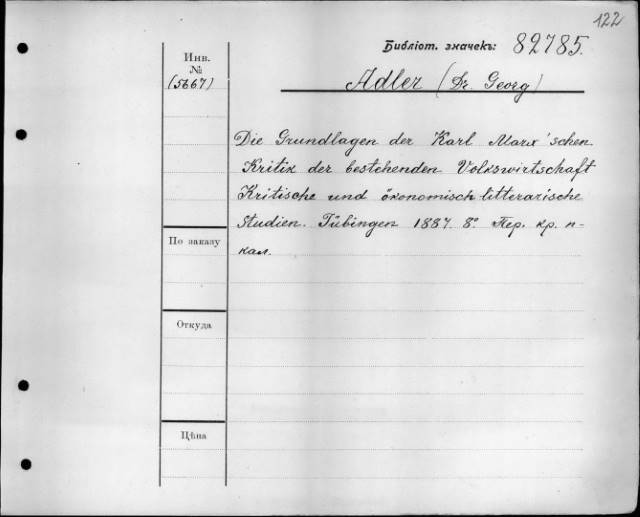 122
Библіот. значекъ: 82785.
Инв.
№
(5667)
Adler (Dr. Georg)
Die Grundlagen der Karl Marx'schen
Kritik der bestehenden Volkswirtschaft
Kritische und ökonomisch-litterarische
Studien. Tübingen 1887. 8° Пер. кр. п-
кал.
По заказу
Откуда
Цѣна